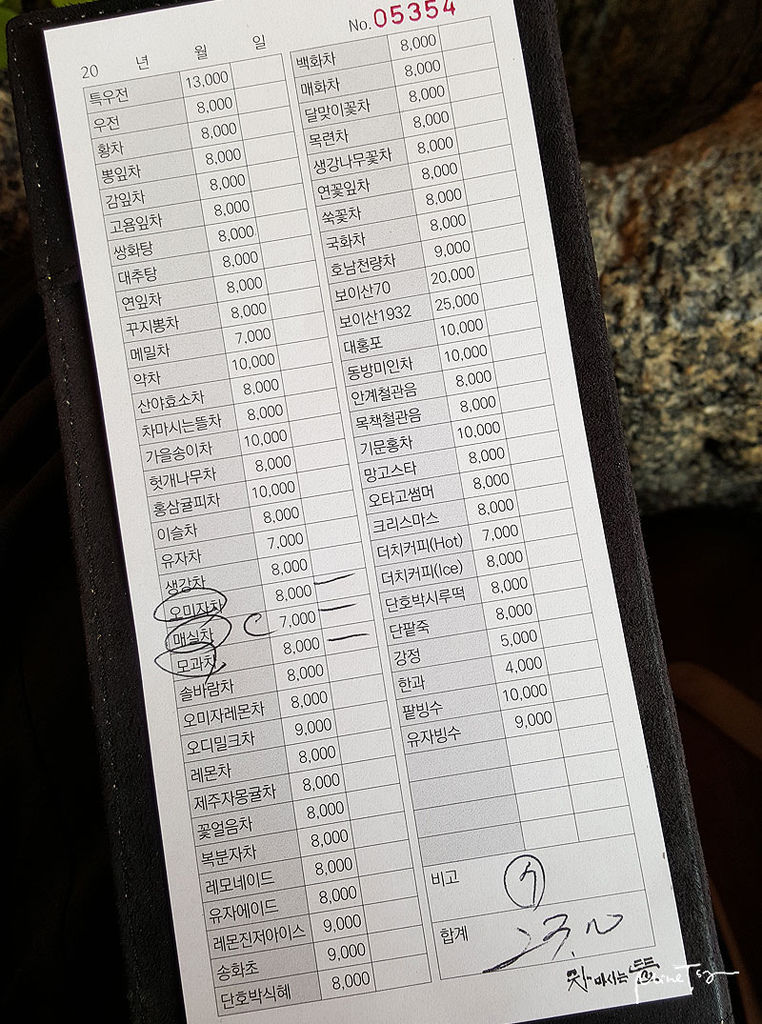 No.05354
20 년 월 일
특우전 13,000
우전 8,000
황차 8,000
뽕잎차 8,000
감잎차 8,000
고욤잎차 8,000
쌍화탕 8,000
대추탕 8,000
연잎차 8,000
꾸지뽕차 8,000
메밀차 7,000
약차 10,000
산야효소차 8,000
차마시는뜰차 8,000
가을송이차 10,000
헛개나무차 8,000
홍삼귤피차 10,000
이슬차 8,000
유자차 7,000
생강차 8,000
오미자차 8,000
매실차 7,000
모과차 8,000
솔바람차 8,000
오미자레몬차 8,000
오디밀크차 9,000
레몬차 8,000
제주자몽귤차 8,000
꽃얼음차 8,000
복분자차 8,000
레모네이드 8,000
유자에이드 8,000
레몬진저아이스 9,000
송화초 9,000
단호박식혜 8,000
백화차 8,000
매화차 8,000
달맞이꽃차 8,000
목련차 8,000
생강나무꽃차 8,000
연꽃잎차 8,000
쑥꽃차 8,000
국화차 8,000
호남천량차 9,000
보이산70 20,000
보이산1932 25,000
대홍포 10,000
동방미인차 10,000
안계철관음 8,000
목책철관음 8,000
기문홍차 10,000
망고스타 8,000
오타고썸머 8,000
크리스마스 8,000
더치커피(Hot) 7,000
더치커피(Ice) 8,000
단호박시루떡 8,000
단팥죽 8,000
강정 5,000
한과 4,000
팥빙수 10,000
유자빙수 9,000
비고
합계
차마시는뜰